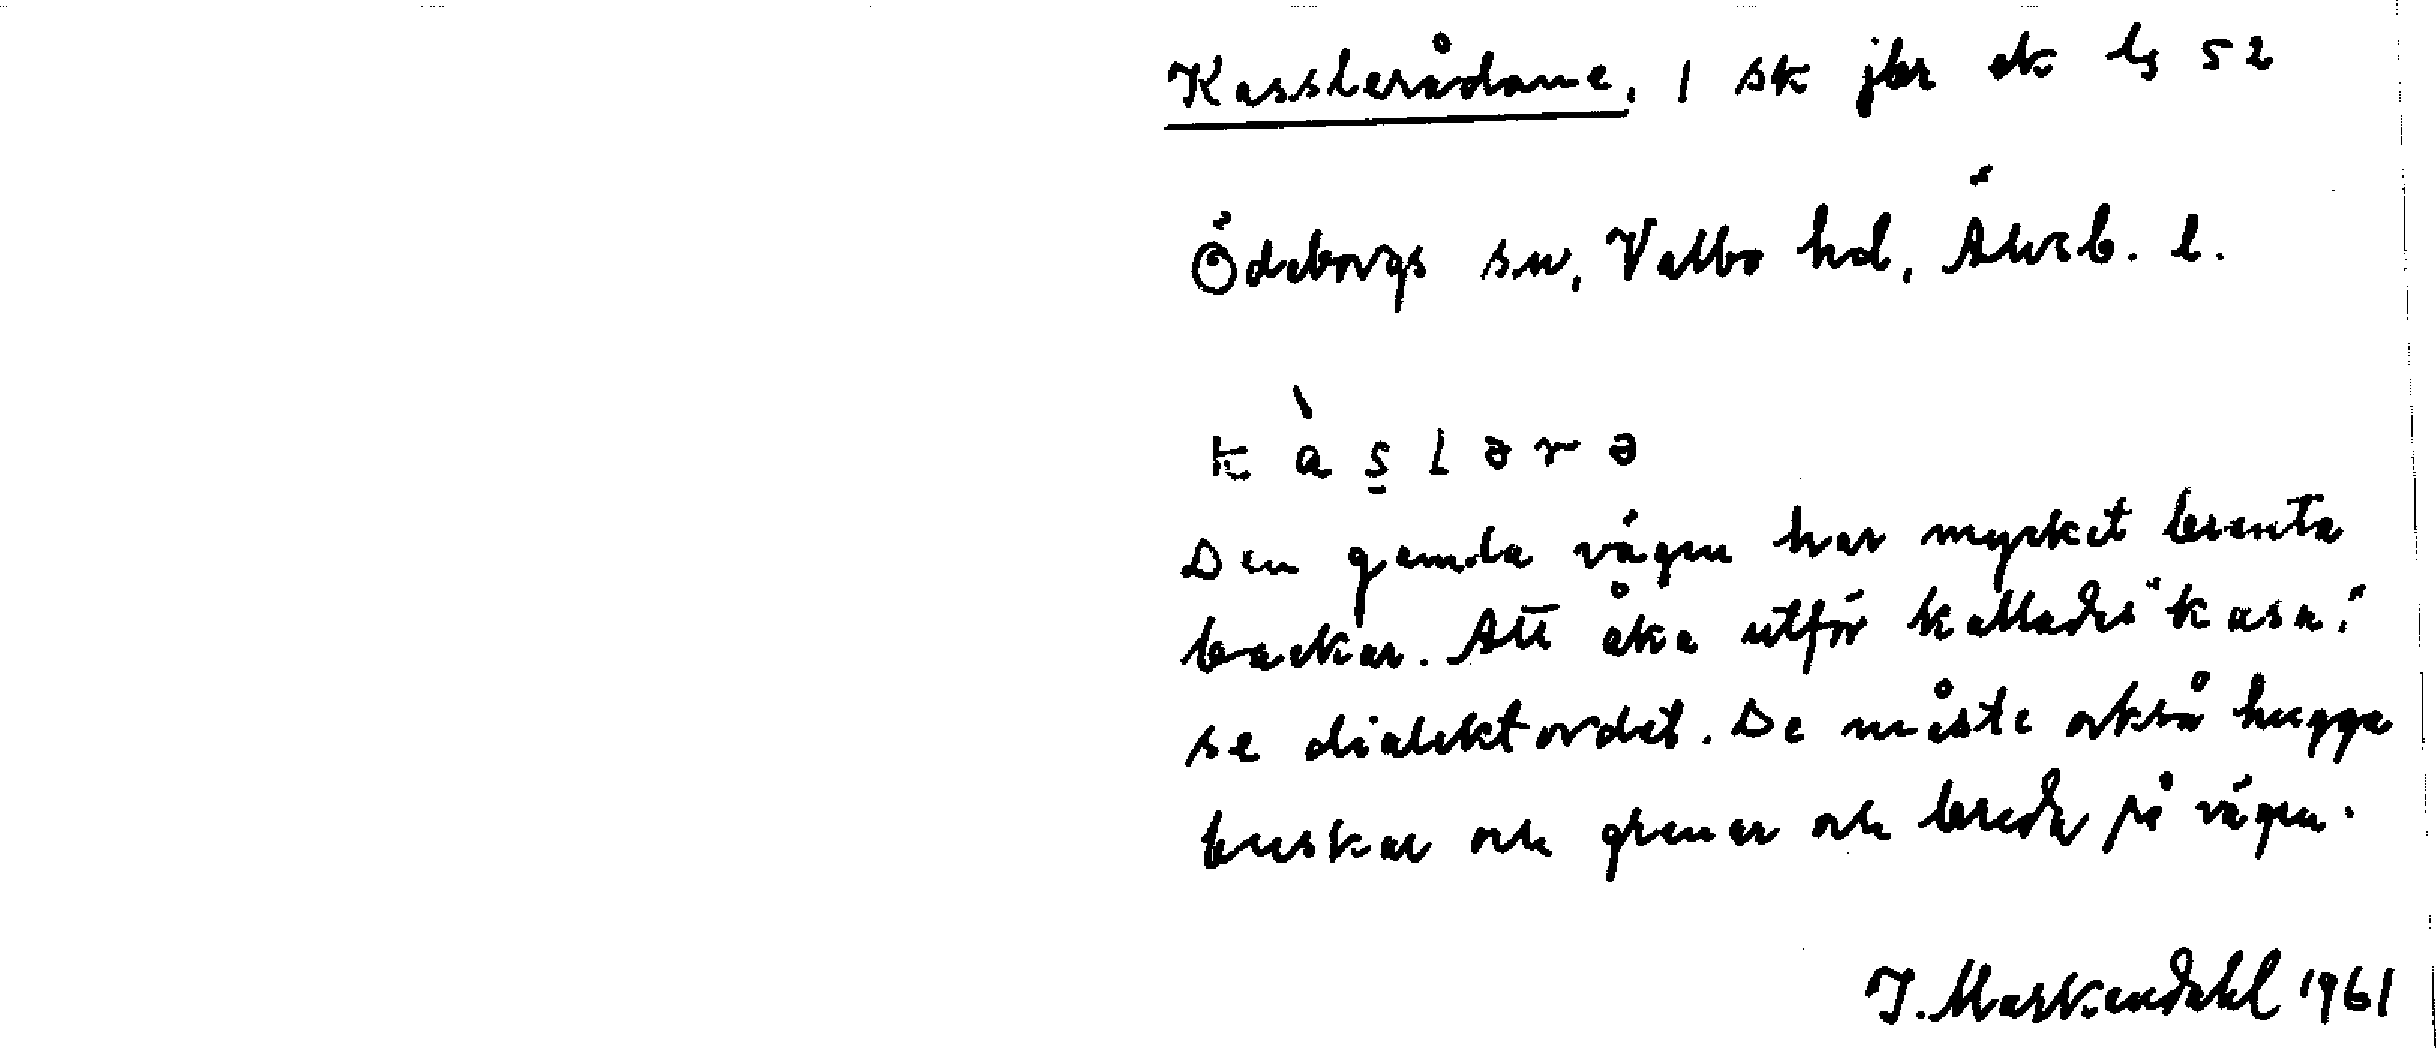 Kasslerådane, 1 sk jbr ek bg 52
Ödeborgs sn, Valbo hd, Älvsb. l.
k à s̲ l ə r ə
Den gamla vägen har mycket branta
backar. Att åka utför kallades "kasa".
se dialektordet. De måste också hugga
buskar och grenar och breda på vägen.
J. Markendahl 1961